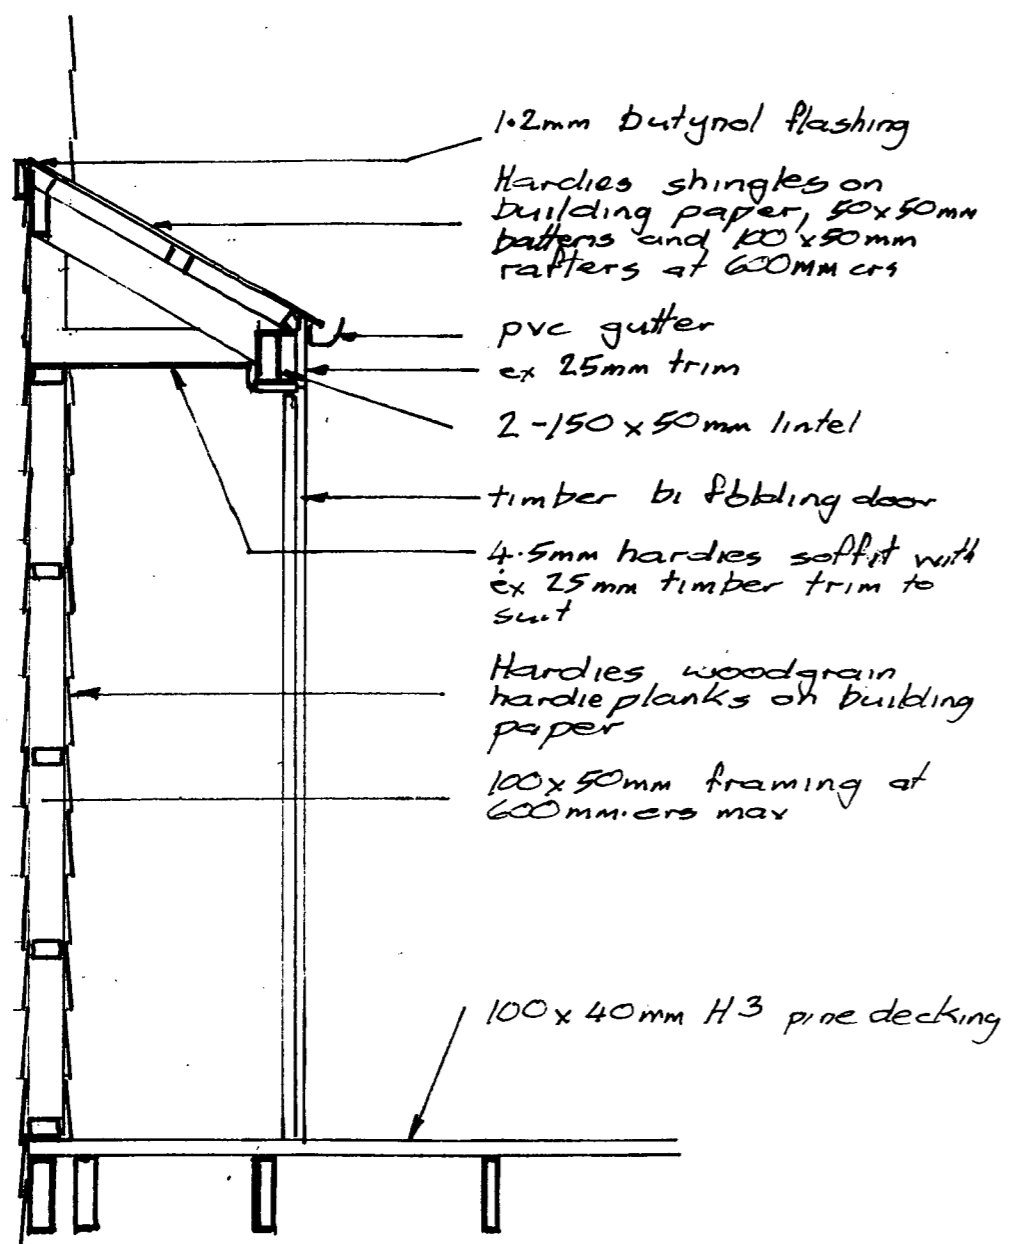 1.2mm butynol flashing
Hardies shingles on
building paper, 50x50mm
battens and 100x50mm
rafters at 600mm crs
pvc gutter
ex 25mm trim
2-150x50mm lintel
timber bi folding door
4.5mm hardies soffit with
ex 25mm timber trim to
suit
Hardies woodgrain
hardieplanks on building
paper
100x50mm framing at
600mm.crs max
100x40mm H3 pine decking